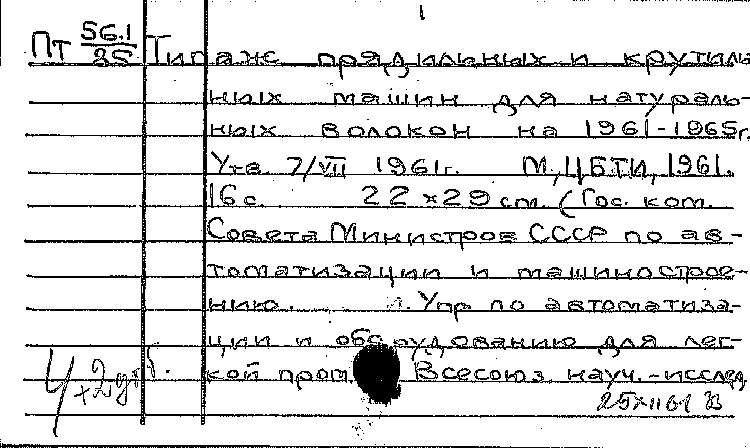 1
Пт 56.1/35 Типаж прядильных и крутиль
ных машин для натураль-
ных волокон на 1961-1965г.
Утв. 7/VII 1961г. М., ЦБТИ, 1961.
16 с. 22×29 см. (Гос. ком.
Совета Министров СССР по ав-
томатизации и машинострое-
нию. Упр по автоматиза-
ции и оборудованию для лег-
кой пром. Всесоюз. науч.-исслед